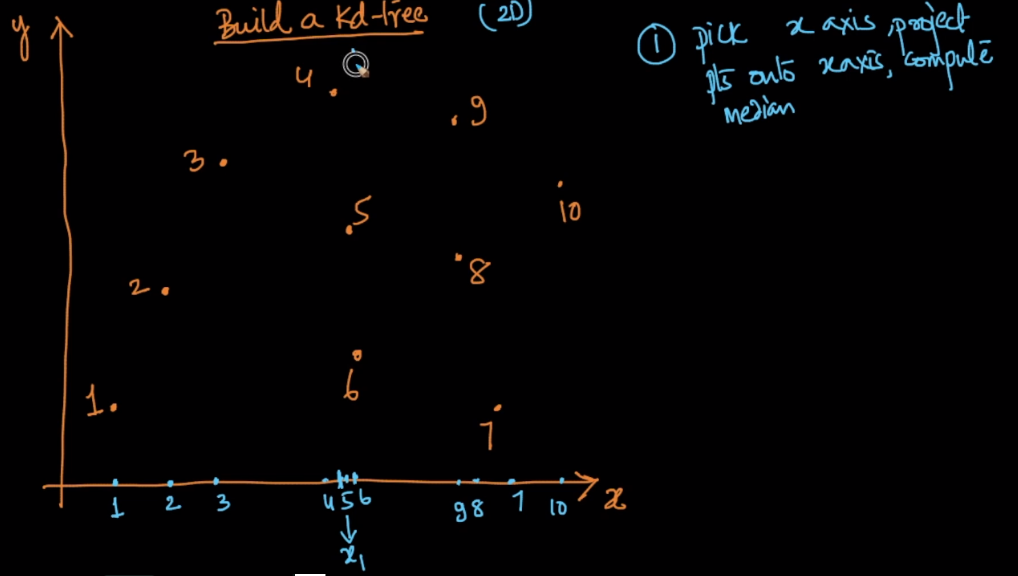 y
Build a Kd-tree (2D)
① pick x axis, project
pts onto x axis, compute
median
4
9
3
5
10
8
2
6
1
7
1 2 3 4 5 6 9 8 7 10 x
x1